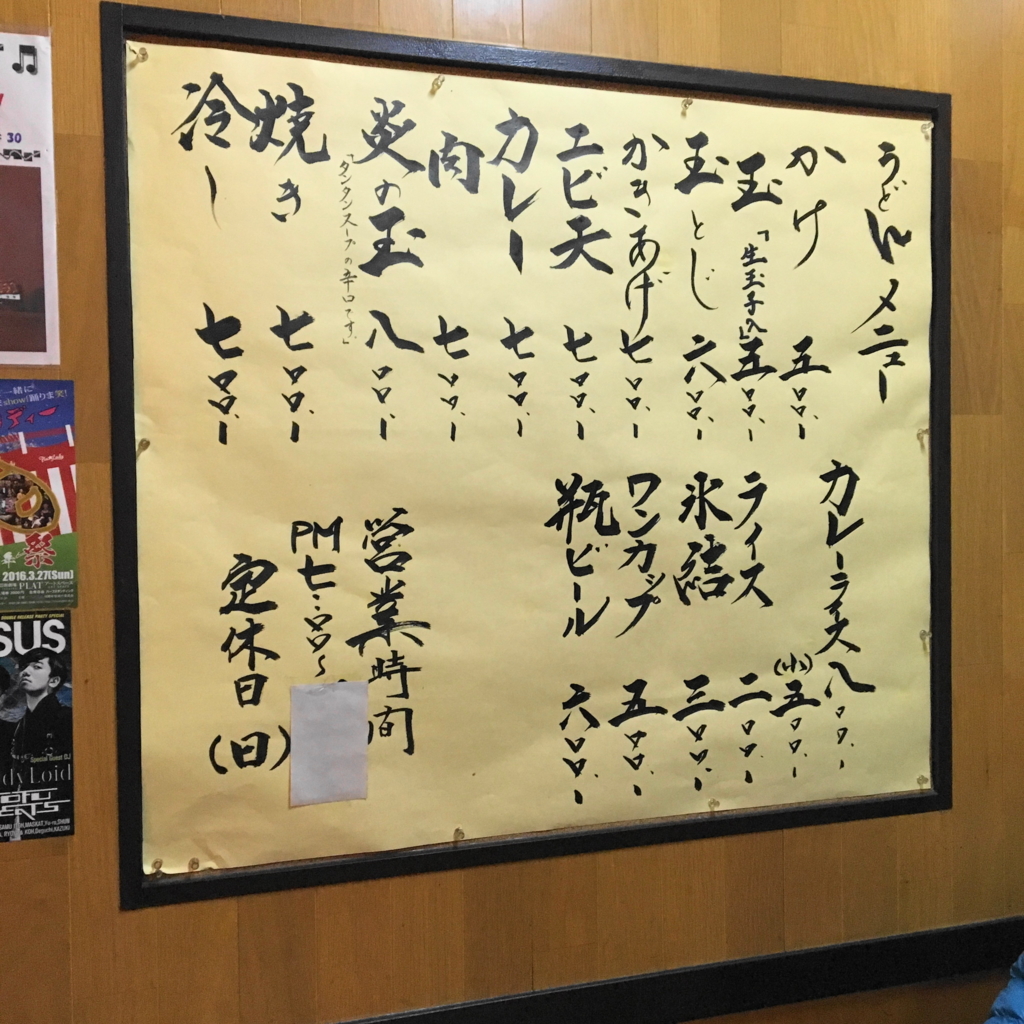 うどんメニュー
かけ 五〇〇、ー
玉「生玉子入」五〇〇、ー
玉とじ 六〇〇、ー
かきあげ 七〇〇、ー
エビ天 七〇〇、ー
カレー 七〇〇、ー
肉 七〇〇、ー
炎の玉 八〇〇、ー
「タンタンスープの辛口です。」
焼き 七〇〇、ー
冷し 七〇〇、ー
カレーライス 八〇〇、ー
(小)五〇〇、ー
ライス 二〇〇、ー
氷結 三〇〇、ー
ワンカップ 五〇〇、ー
瓶ビール 六〇〇、ー
営業時間
PM七:〇〇〜
定休日(日)
30
一緒に
show!踊りま笑!
ディー
祭
2016.3.27(Sun)
PLAT
SUS
Special Guest DJ
dyLoid